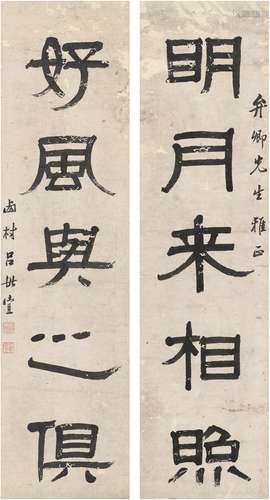 弁卿先生雅正
明月来相照
好風與之俱
西村呂世宜